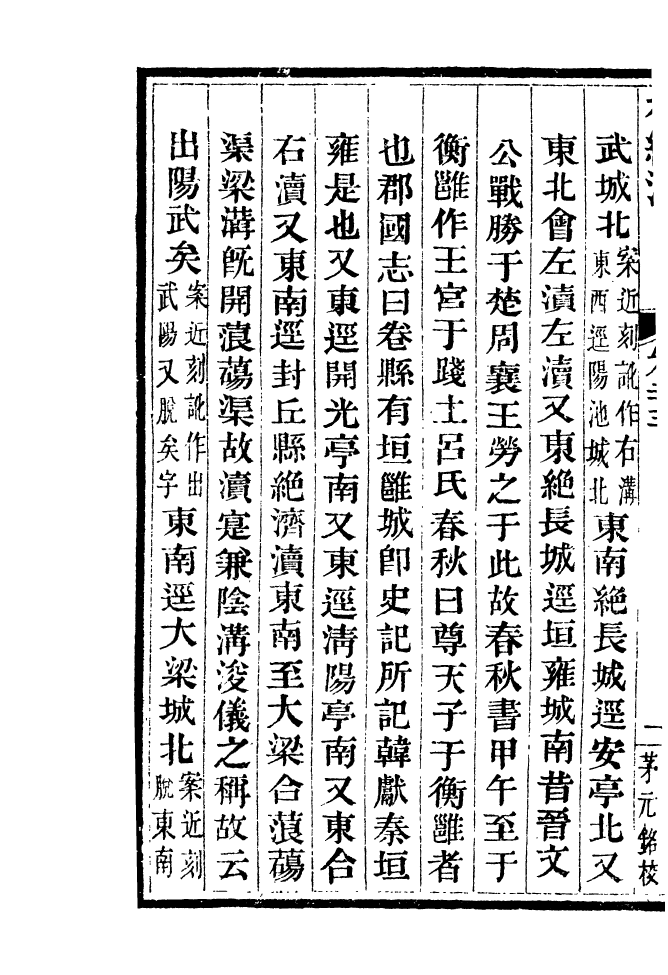 武城北案近刻訛作右溝東西逕陽池城北東南絶長城逕安亭北又
東北會左瀆左瀆又東絶長城逕垣雍城南昔晉文
公戰勝于楚周襄王勞之于此故春秋書甲午至于
衡雝作王宮于踐土呂氏春秋曰尊天子于衡雝者
也郡國志曰卷縣有垣雝城卽史記所記韓獻秦垣
雍是也又東逕開光亭南又東逕清陽亭南又東合
右瀆又東南逕封丘縣絶濟瀆東南至大梁合蒗蕩
渠梁溝旣開蒗蕩渠故瀆寔兼陰溝浚儀之稱故云
出陽武矣案近刻訛作出武陽又脫矣字東南逕大梁城北案近刻脫東南
一二茅元銘校